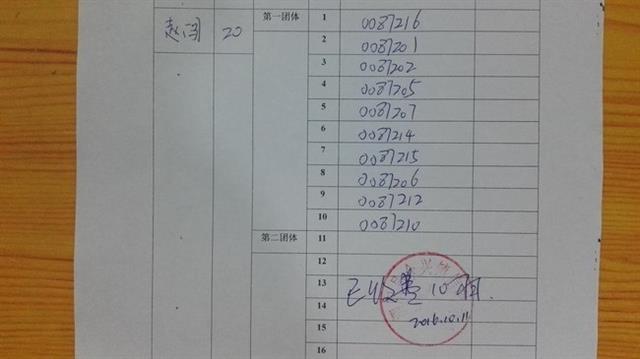 赵闯 20 第一团体 1 0087216
2 0087201
3 0087202
4 0087205
5 0087207
6 0087214
7 0087215
8 0087206
9 0087212
10 0087210
第二团体 11
12
13 已收费10个
14 2016.10.11
15
16